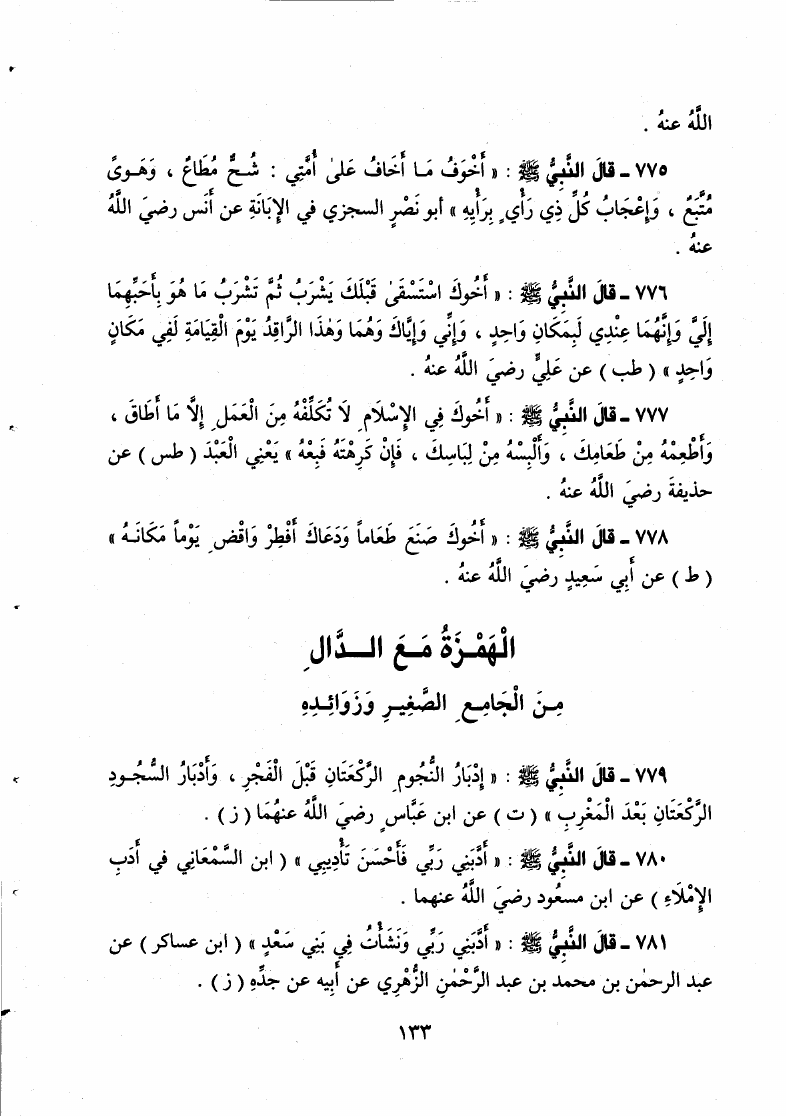 اللَّهُ عنهُ .
٧٧٥ ـ قالَ النَّبِيُّ ﷺ : « أَخْوَفُ مَـا أَخَافُ عَلىٰ أُمَّتِي : شُـحٌّ مُطَاعٌ ، وَهَـوىً
مُتَّبَعٌ ، وَإِعْجَابُ كُلِّ ذِي رَأْيٍ بِرَأْيِهِ » أبو نَصْرٍ السجزي في الإِبَانَةِ عن أنس رضيَ اللَّهُ
عنهُ .
٧٧٦ ـ قالَ النَّبِيُّ ﷺ : « أَخُوكَ اسْتَسْقىٰ قَبْلَكَ يَشْرَبُ ثُمَّ تَشْرَبُ مَا هُوَ بِأَحَبِّهِمَا
إِلَيَّ وَإِنَّهُمَا عِنْدِي لَبِمَكَانٍ وَاحِدٍ ، وَإِنِّي وَإِيَّاكَ وَهُمَا وَهٰذَا الرَّاقِدُ يَوْمَ الْقِيَامَةِ لَفِي مَكَانٍ
وَاحِدٍ » ( طب ) عن عَلِيٍّ رضيَ اللَّهُ عنهُ .
٧٧٧ ـ قالَ النَّبِيُّ ﷺ : « أَخُوكَ فِي الإِسْلَامِ لَا تُكَلِّفْهُ مِنَ الْعَمَلِ إِلَّا مَا أَطَاقَ ،
وَأَطْعِمْهُ مِنْ طَعَامِكَ ، وَأَلْبِسْهُ مِنْ لِبَاسِكَ ، فَإِنْ كَرِهْتَهُ فَبِعْهُ » يَعْنِي الْعَبْدَ ( طس ) عن
حذيفة رضيَ اللَّهُ عنهُ .
٧٧٨ ـ قالَ النَّبِيُّ ﷺ : « أَخُوكَ صَنَعَ طَعَاماً وَدَعَاكَ أَفْطِرْ وَاقْضِ يَوْماً مَكَانَـهُ »
( ط ) عن أَبِي سَعِيدٍ رضيَ اللَّهُ عنهُ .
الْهَمْـزَةُ مَـعَ الـدَّالِ
مِنَ الْجَامِعِ الصَّغِيرِ وَزَوَائِدِهِ
٧٧٩ ـ قالَ النَّبِيُّ ﷺ : « إِدْبَارُ النُّجُومِ الرَّكْعَتَانِ قَبْلَ الْفَجْرِ ، وَأَدْبَارُ السُّجُـودِ
الرَّكْعَتَانِ بَعْدَ الْمَغْرِبِ » ( ت ) عن ابن عَبَّاسٍ رضيَ اللَّهُ عنهُمَا ( ز ) .
٧٨٠ ـ قالَ النَّبِيُّ ﷺ : « أَدَّبَنِي رَبِّي فَأَحْسَنَ تَأْدِيبِي » ( ابن السَّمْعَانِي في أَدَبِ
الإِمْلَاءِ ) عن ابن مسعُود رضيَ اللَّهُ عنهما .
٧٨١ ـ قالَ النَّبِيُّ ﷺ : « أَدَّبَنِي رَبِّي وَنَشَأْتُ فِي بَنِي سَعْدٍ » ( ابن عساكر ) عن
عبد الرحمٰن بن محمد بن عبد الرَّحْمٰنِ الزُّهْرِي عن أَبيه عن جدِّهِ ( ز ) .
١٣٣